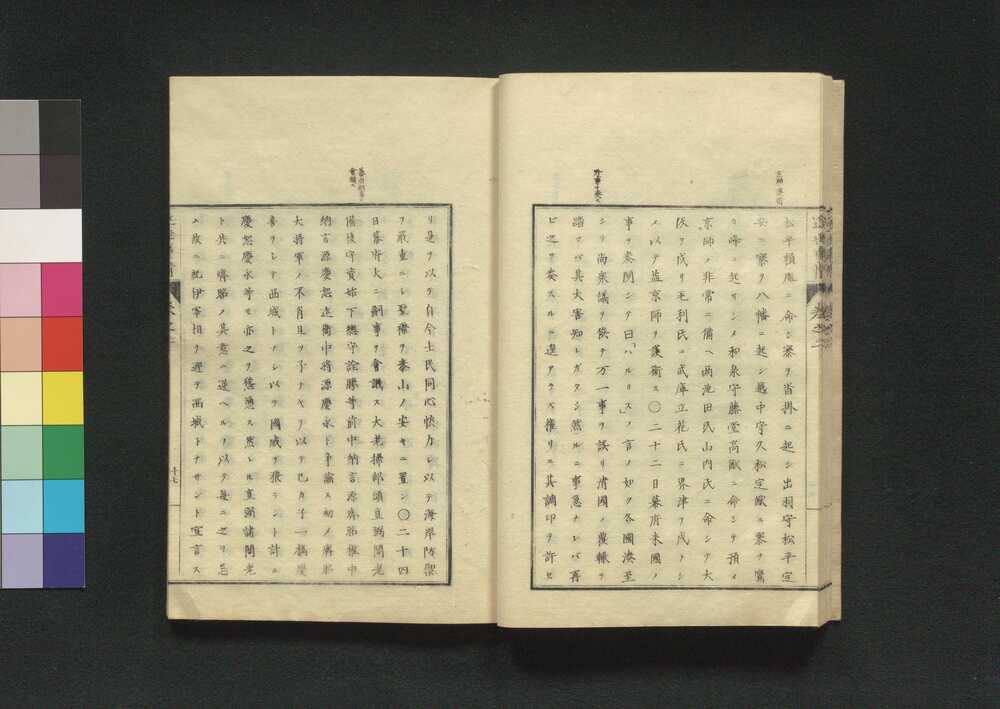 松平頼胤ニ命シ寨ヲ沓掛ニ起シ出羽守松平定
安ニ寨ヲ八幡ニ起シ越中守久松定猷ニ寨ヲ鷹
ヶ峰ニ起サシメ和泉守藤堂高猷ニ命シテ預メ
京師ノ非常ニ備ヘ両池田氏山内氏ニ命シテ大
阪ヲ戍リ毛利氏ニ武庫立花氏ニ界津ヲ戍ラシ
メ以テ益京師ヲ護衛ス〇二十二日幕府米國ノ
事ヲ奏聞シテ曰「ハルリス」ノ言ノ如ク各國湊至
シテ尚衆議ヲ俟チ万一事ヲ誤リ清國ノ覆轍ヲ
踏マバ其大害知レガタシ然ルニ事急ナレバ再
ビ之ヲ奏スルニ遑アラズ権リニ其調印ヲ許セ
外事ヲ奏ス
リ是ヲ以テ自今士民同心協力シ以テ海岸防禦
ヲ嚴重ニシ聖襟ヲ泰山ノ安キニ置ン〇二十四
日幕府大ニ嗣事ヲ會議ス大老掃部頭直弼閣老
備後守資始下總守詮勝等前中納言源齊昭權中
納言源慶恕近衛中将源慶永ト争論ス初メ齊昭
大将軍ノ不肖且ツ子ナキヲ以テ己カ子一橋慶
喜ヲシテ西城トナシ以テ國威ヲ張ラント計ル
慶恕慶永等モ亦之ヲ慫慂ス然レトモ直弼諸閣老
ト共ニ齊昭ノ其意ニ逆ヘルヲ以テ毎ニ之ヲ忌
ム故ニ紀伊宰相ヲ迎テ西城トナサント宣言ス
十七